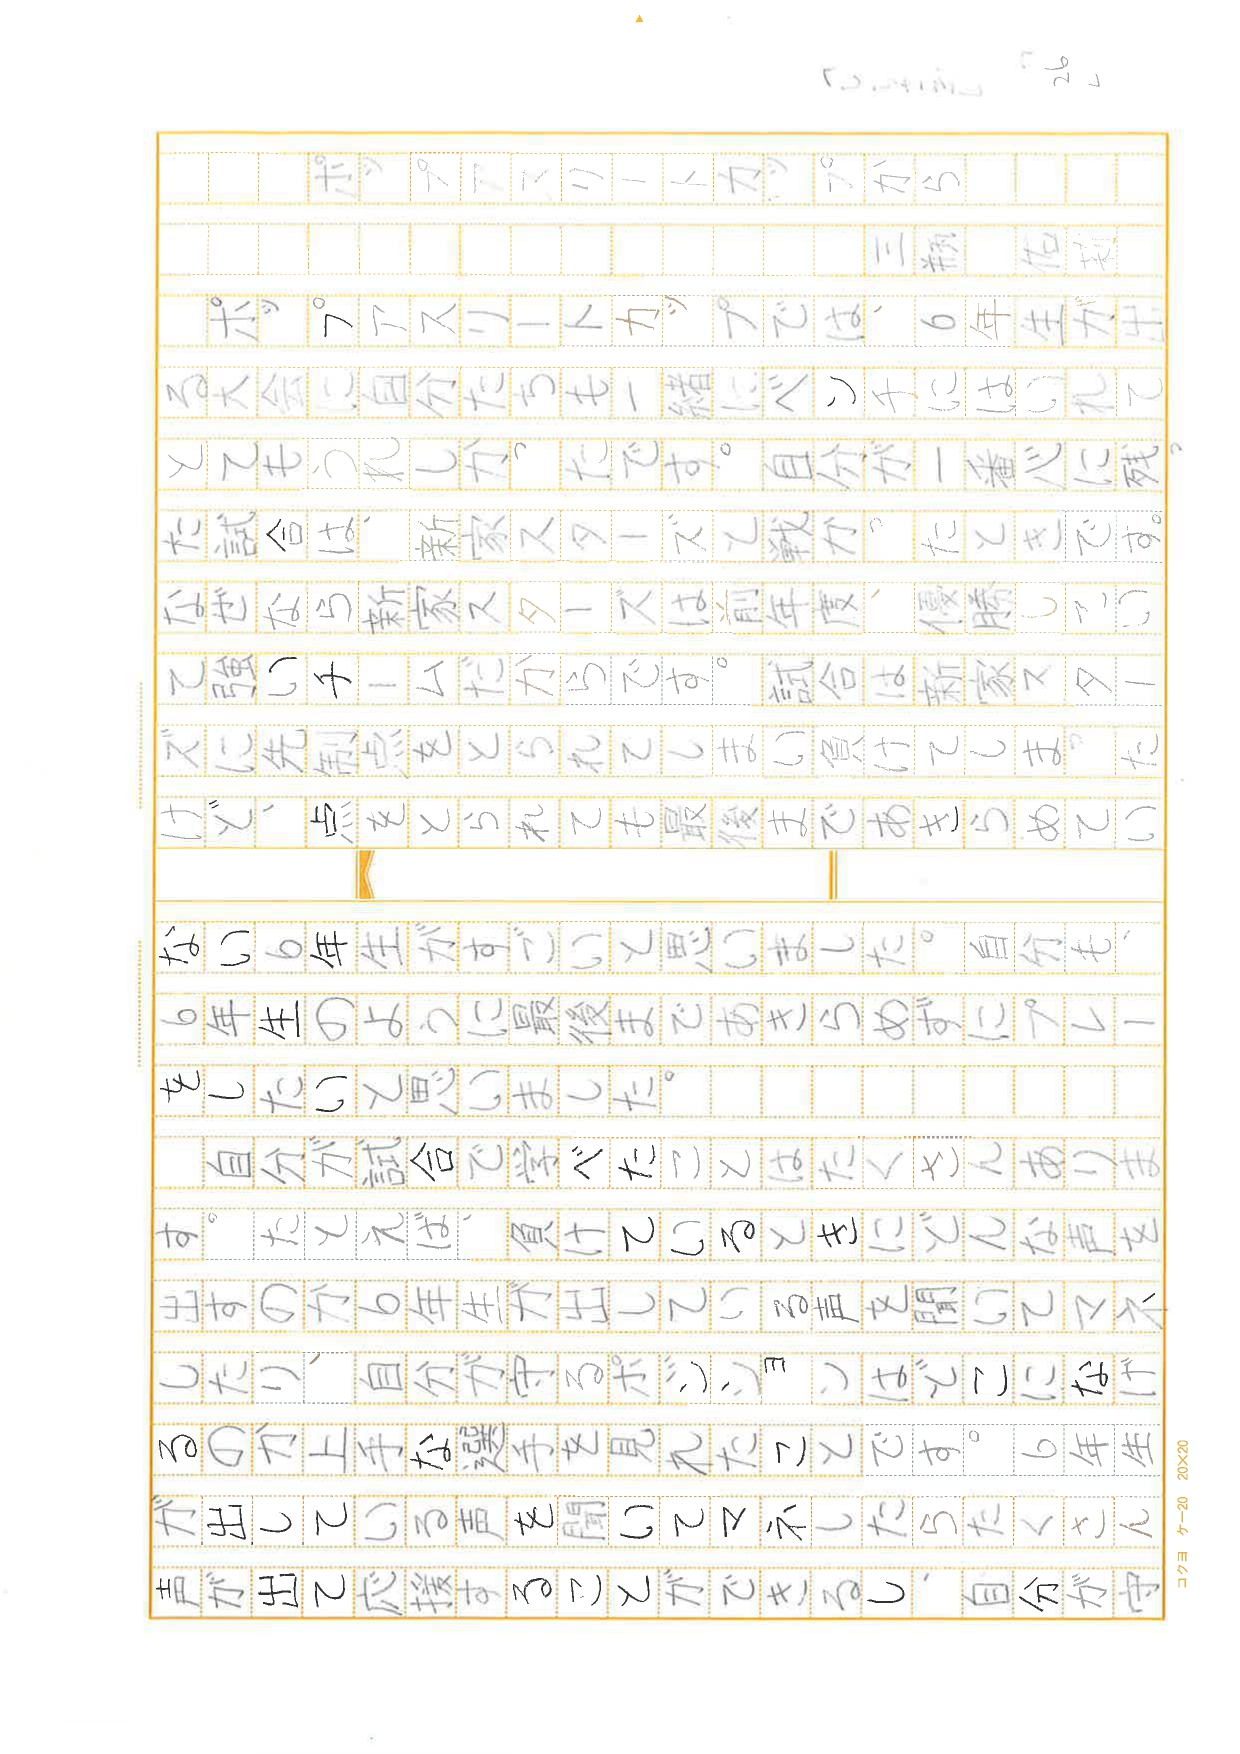 ポップアスリートカップから
三瓶　佑
ポップアスリートカップでは、6年生が出
る大会に自分たちも一緒にベンチにはいれて
とてもうれしかったです。自分が一番心に残っ
た試合は、新家スターズと戦かったときです。
なぜなら新家スターズは前年度、優勝してい
て強いチームだからです。試合は新家スター
ズに先制点をとられてしまい負けてしまった
けど、点をとられても最後まであきらめてい
ない6年生がすごいと思いました。自分も、
6年生のように最後まであきらめずにプレー
をしたいと思いました。
自分が試合で学べたことはたくさんありま
す。たとえば、負けているときにどんな声を
出すのか6年生が出している声を聞いてマネ
したり、自分が守るポジションはどこになげ
るのか上手な選手を見れたことです。6年生
が出している声を聞いてマネしたらたくさん
声が出て応援することができるし、自分が守
コクヨ ケー20 20×20